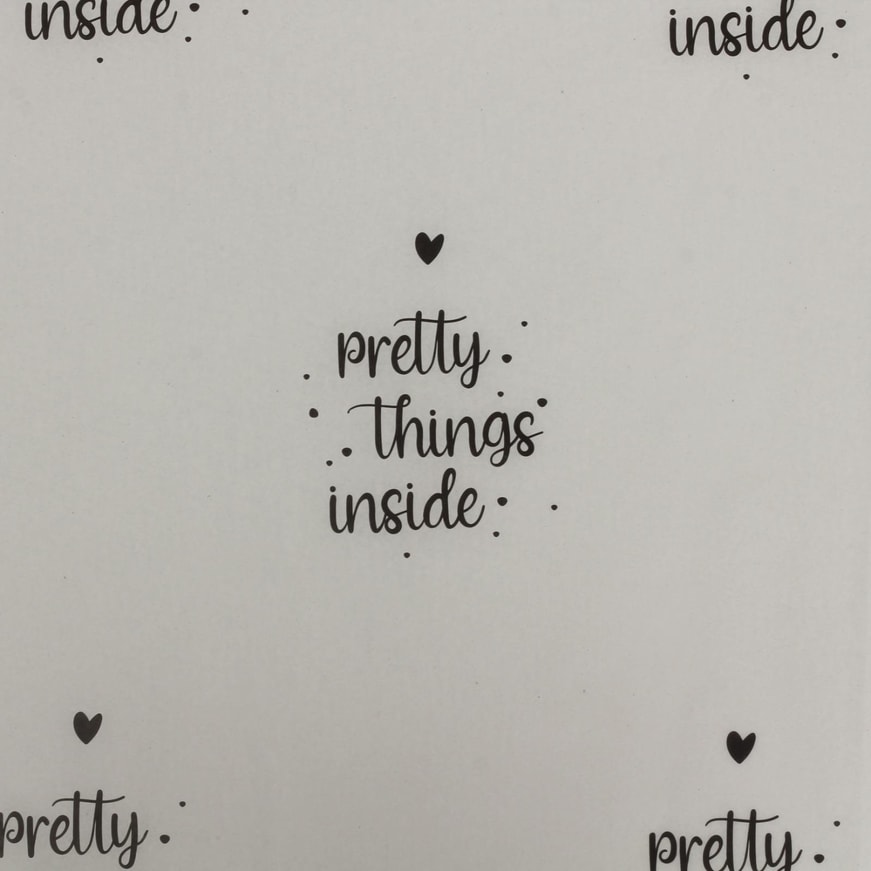 inside
inside
pretty
things
inside
pretty
pretty